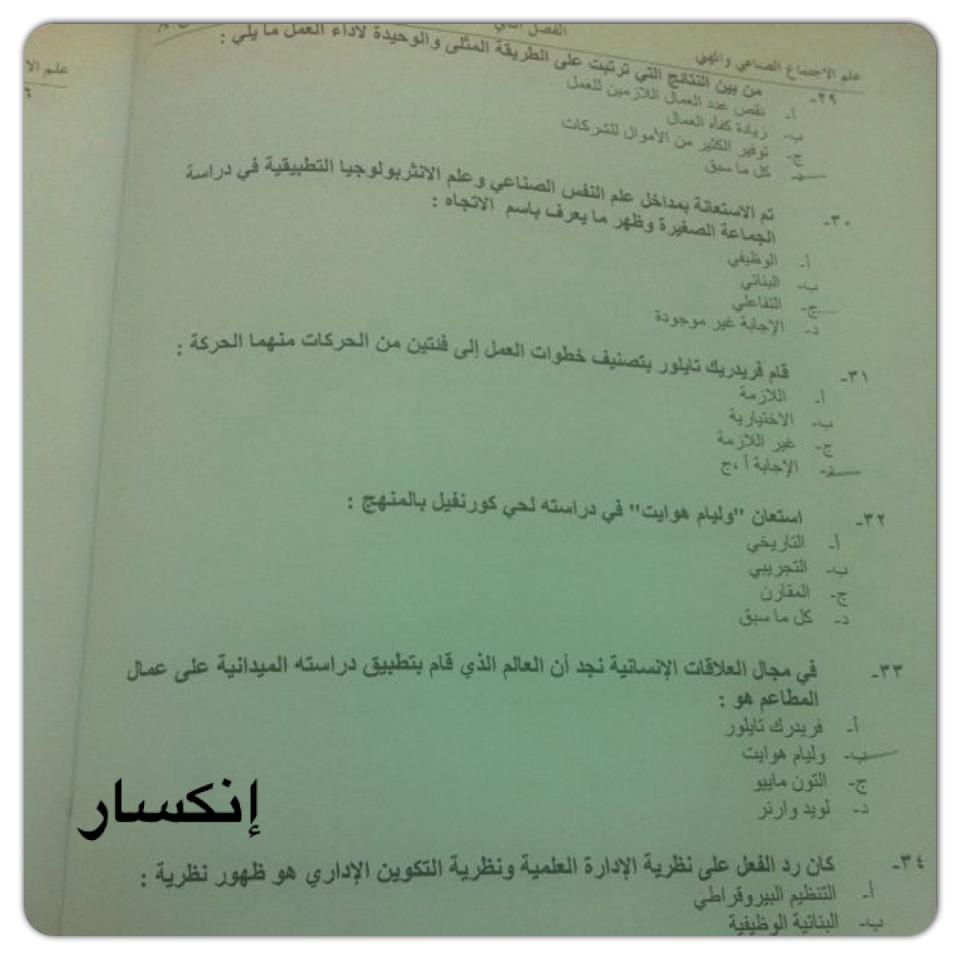 علم الاجتماع الصناعي والمهني
الفصل الثاني
علم الا
٦
٢٩- من بين النتائج التي ترتبت على الطريقة المثلى والوحيدة لاداء العمل ما يلي :
أ- نقص عدد العمال اللازمين للعمل
ب- زيادة كفاه العمال
ج- توفير الكثير من الأموال للشركات
كل ما سبق
٣٠- تم الاستعانة بمداخل علم النفس الصناعي وعلم الانثربولوجيا التطبيقية في دراسة
الجماعة الصغيرة وظهر ما يعرف باسم الاتجاه :
أ- الوظيفي
ب- البنائي
ج- التفاعلي
د- الإجابة غير موجودة
٣١- قام فريدريك تايلور بتصنيف خطوات العمل إلى فئتين من الحركات منهما الحركة :
أ- اللازمة
ب- الاختيارية
ج- غير اللازمة
د- الإجابة أ ،ج
٣٢- استعان "وليام هوايت" في دراسته لحي كورنفيل بالمنهج :
أ- التاريخي
ب- التجريبي
ج- المقارن
د- كل ما سبق
٣٣- في مجال العلاقات الإنسانية نجد أن العالم الذي قام بتطبيق دراسته الميدانية على عمال
المطاعم هو :
أ- فريدرك تايلور
ب- وليام هوايت
ج- التون ماييو
د- لويد وارنر
إنكسار
٣٤- كان رد الفعل على نظرية الإدارة العلمية ونظرية التكوين الإداري هو ظهور نظرية :
أ- التنظيم البيروقراطي
ب- البنائية الوظيفية